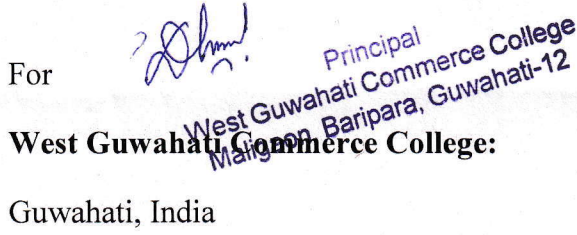 For
Principal
West Guwahati Commerce College
Maligaon, Baripara, Guwahati-12
West Guwahati Commerce College:
Guwahati, India